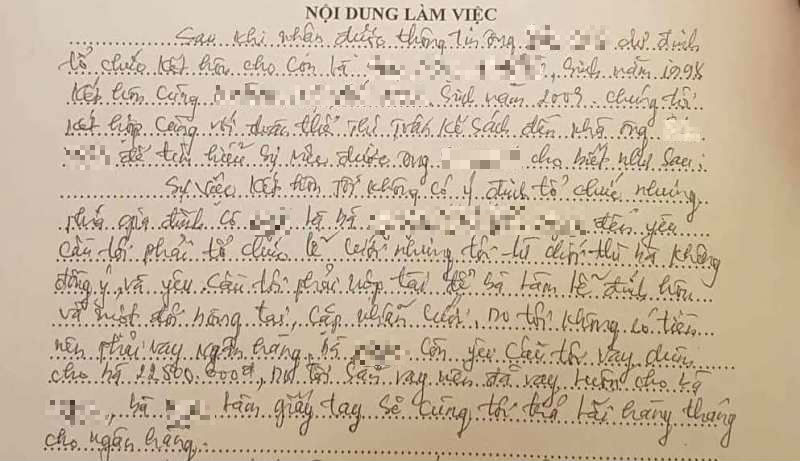 NỘI DUNG LÀM VIỆC
Sau khi nhận được thông tin ông dự định
tổ chức kết hôn cho con là , sinh năm 1998
kết hôn cùng . sinh năm 2009. chúng tôi
kết hợp cùng với đoàn thể Thị Trấn Kế Sách đến nhà ông
để tìm hiểu sự việc được ông cho biết như sau:
Sự việc kết hôn tôi không có ý định tổ chức nhưng
phía gia đình cô là bà đến yêu
cầu tôi phải tổ chức lễ cưới nhưng tôi từ chối thì bà không
đồng ý, và yêu cầu tôi phải nộp tài để bà làm lễ đính hôn
và một đôi bông tai, cặp nhẫn cưới, Do tôi không có tiền
nên phải vay ngân hàng, bà còn yêu cầu tôi vay dùm
cho bà 22.800.000đ, Do tôi sẵn vay nên đã vay luôn cho bà
, bà làm giấy tay sẽ cùng tôi trả lãi hàng tháng
cho ngân hàng.